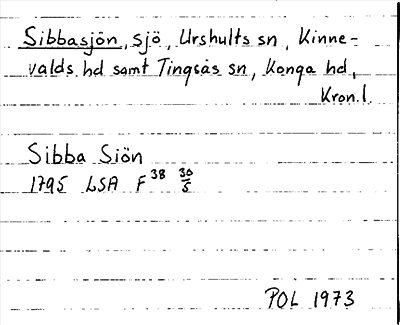 Sibbasjön, sjö, Urshults sn, Kinne-
valds hd samt Tingsås sn, Konga hd,
Kron.l.
Sibba Siön
1795 LSA F 38 30/5
POL 1973